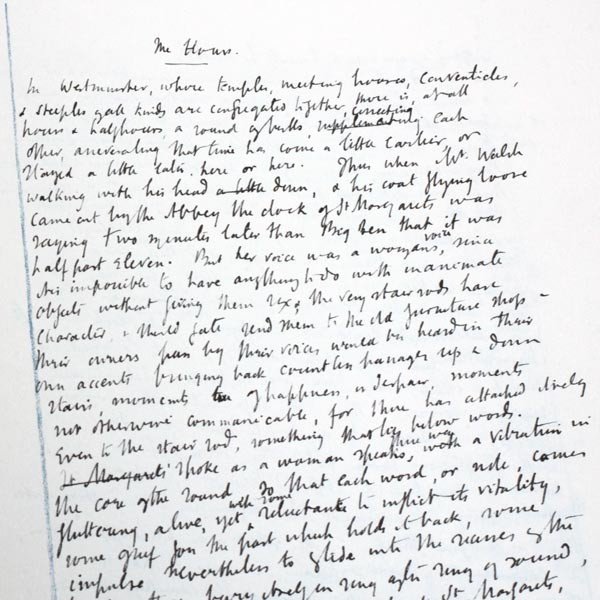 The Hours.
In Westminster, where temples, meeting houses, conventicles,
& steeples of all kinds are congregated together, there is, at all
hours & halfhours, a round of bells, correcting each
other, asseverating that time has come a little earlier, or
stayed a little later, here or here. Thus when Mr. Walsh
walking with his head a little down, & his coat flying loose
came out by the Abbey the clock of St Margarets was
saying two minutes later than Big Ben that it was
half past eleven. But her voice was a womans voice, since
it is impossible to have anything to do with inanimate
objects without giving them sex; the very stair rods have
character, & should fate send them to the old furniture shop
their owners pass by their voices would be heard in their
own accents bringing back countless passages up & down
stairs, moments of happiness, or despair, moments
not otherwise communicable, for there has attached itself
even to the stair rod, something that lay below words.
St Margarets spoke as a woman speaks, there was a vibration in
the core of the sound so that each word, or note, comes
fluttering, alive, yet with some reluctance to inflict its vitality,
some grief for the past which holds it back, some
impulse nevertheless to glide into the recesses of the
itself in ring after ring of sound,
St Margarets,